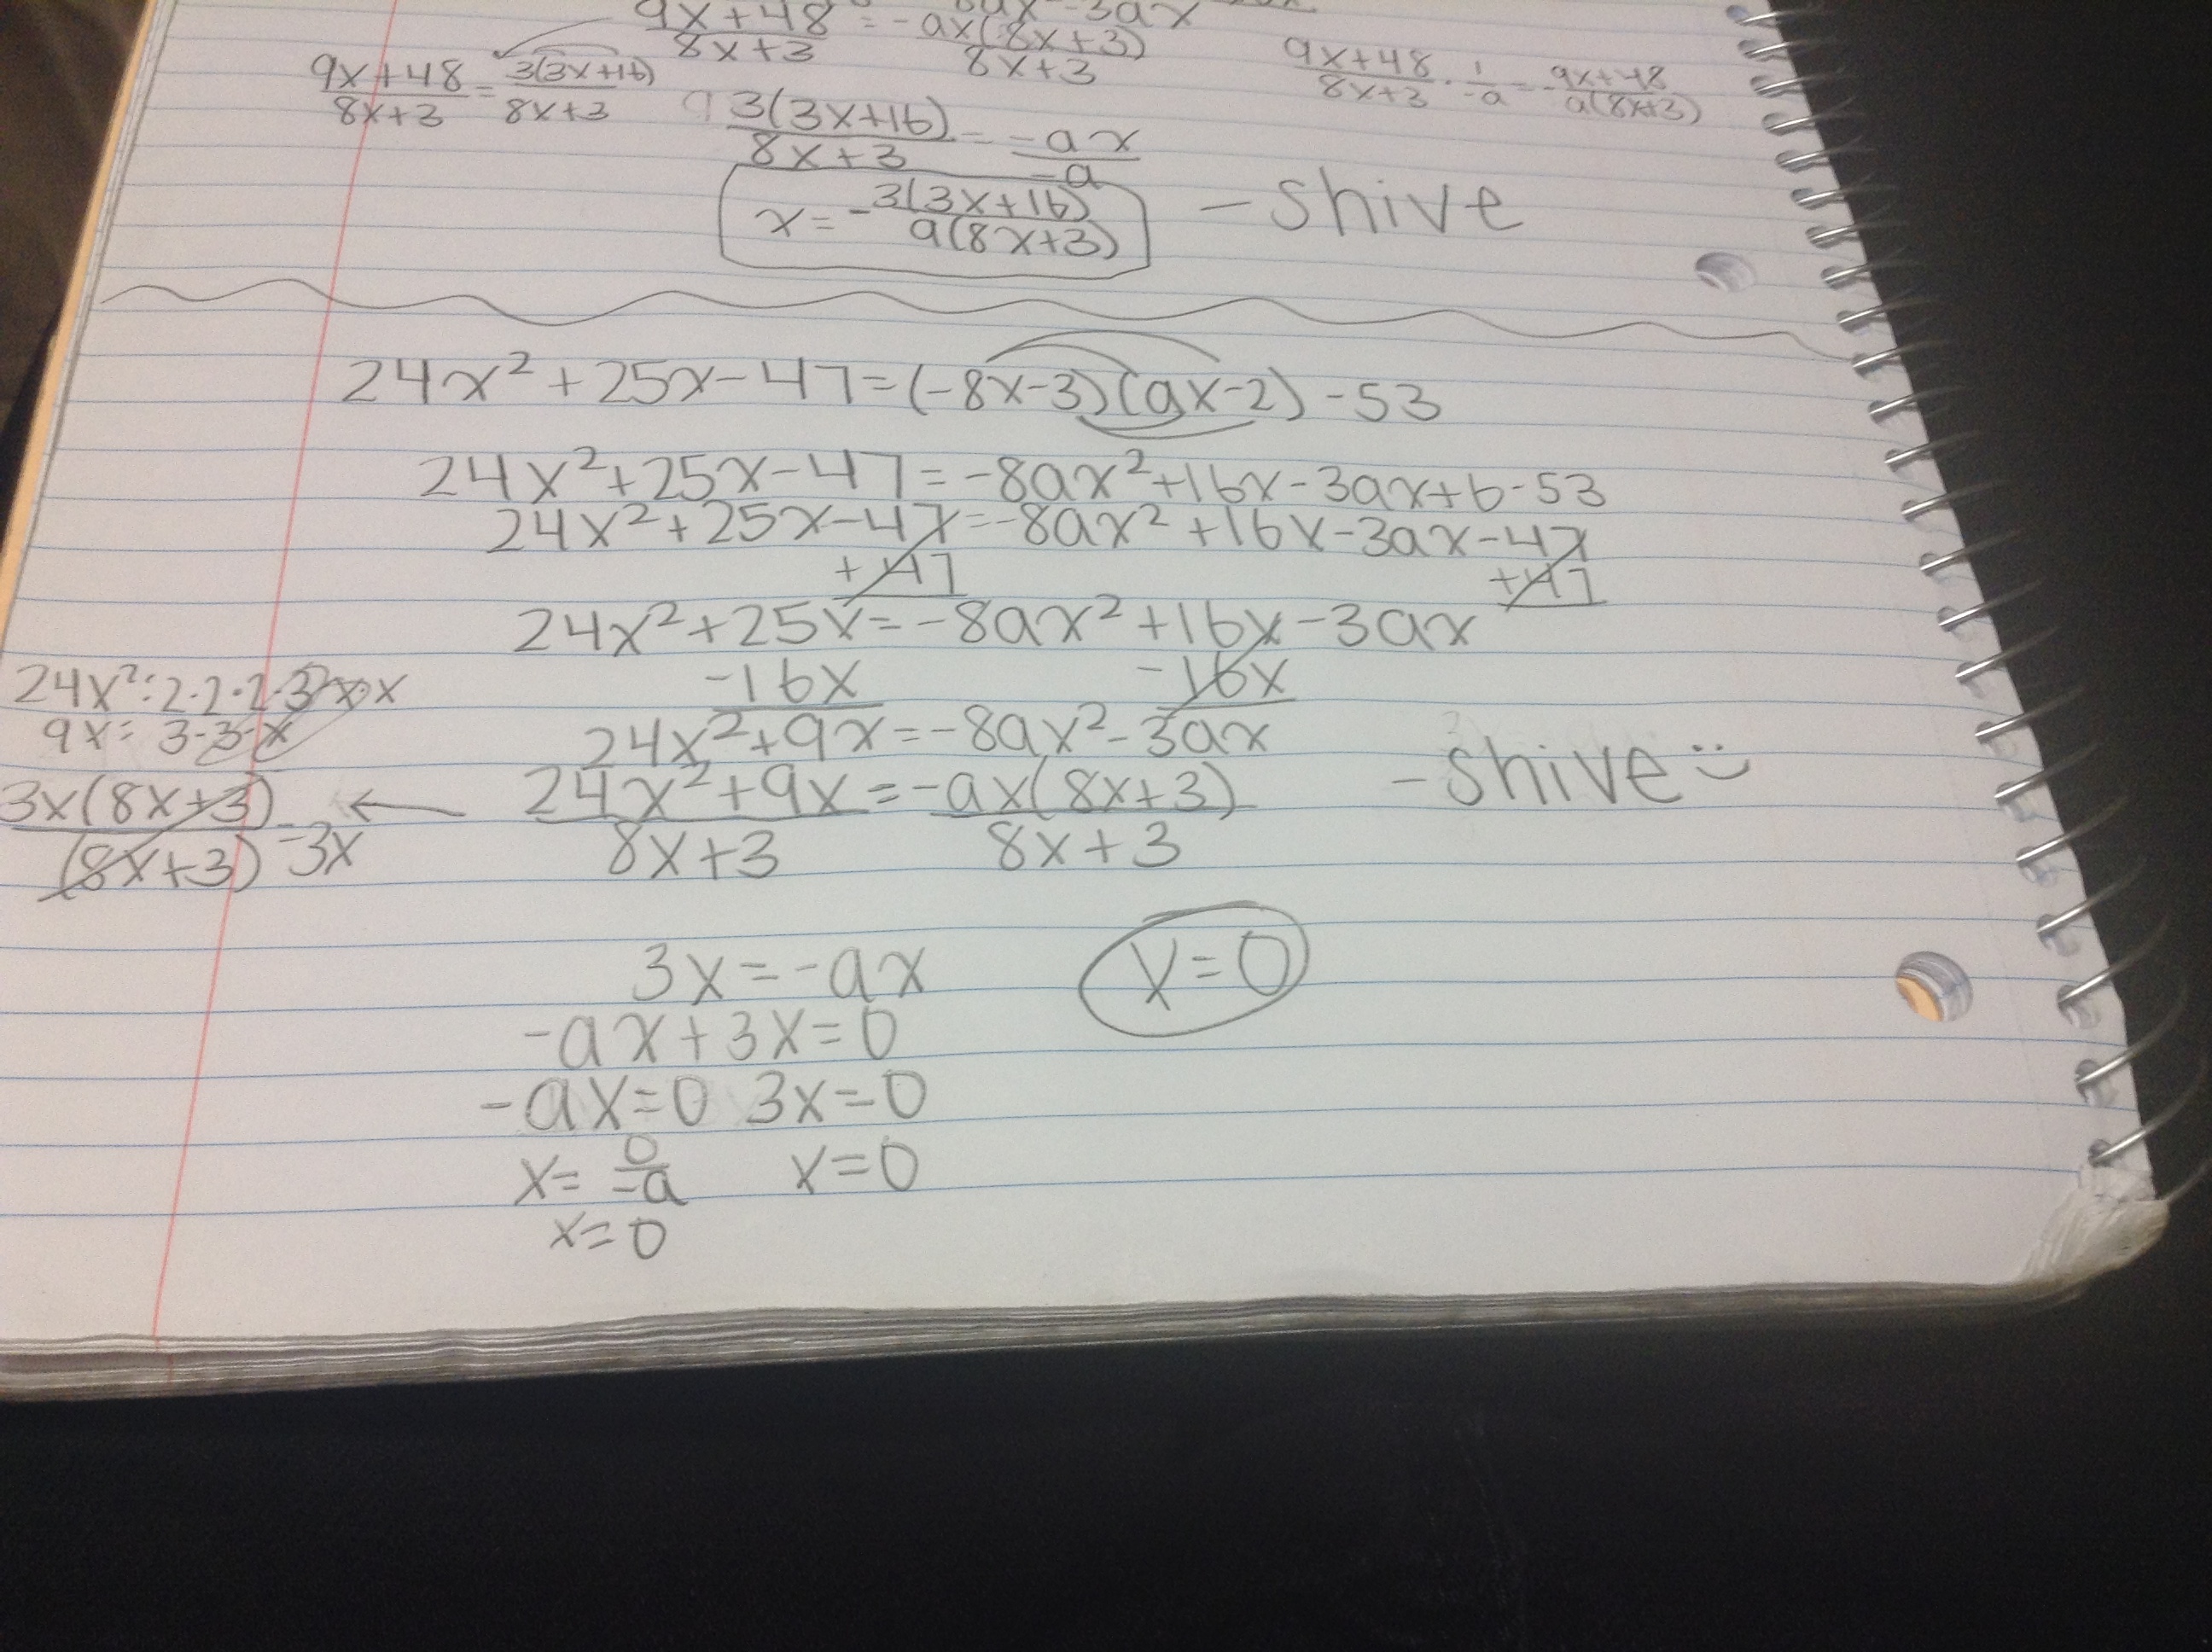 9x+48 = -8ax²-3ax
9x+48/8x+3 = -ax(8x+3)/8x+3
9x+48/8x+3 = 3(3x+16)/8x+3
9x+48/8x+3 · 1/-a = -9x+48/a(8x+3)
3(3x+16)/8x+3 = -ax/-a
x = -3(3x+16)/a(8x+3) - shive
24x²+25x-47=(-8x-3)(ax-2)-53
24x²+25x-47=-8ax²+16x-3ax+6-53
24x²+25x-47=-8ax²+16x-3ax-47
+47 +47
24x²+25x=-8ax²+16x-3ax
-16x -16x
24x²:2·2·2·3·x·x
9x: 3·3·x
24x²+9x=-8ax²-3ax
24x²+9x/8x+3 = -ax(8x+3)/8x+3
- shive :)
3x(8x+3)/(8x+3) = 3x ←
3x=-ax
x=0
-ax+3x=0
-ax=0 3x=0
x=0/-a x=0
x=0